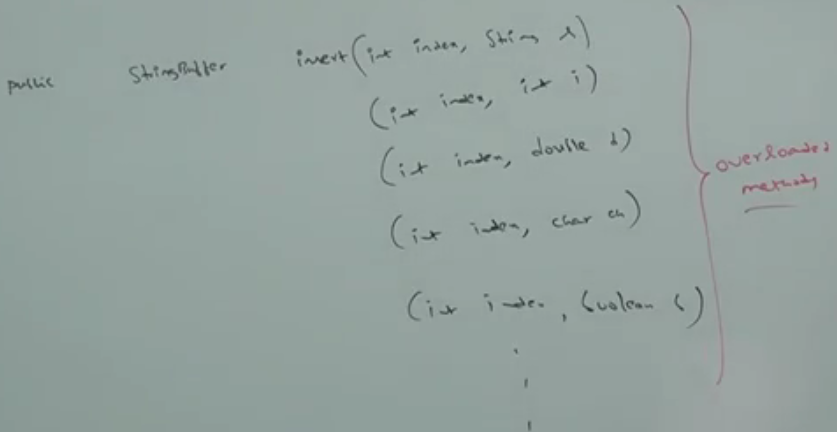 public StringBuffer insert(int index, String s)
(int index, int i)
(int index, double d)
(int index, char ch)
(int index, boolean b)
.
.
.
overloaded
methods